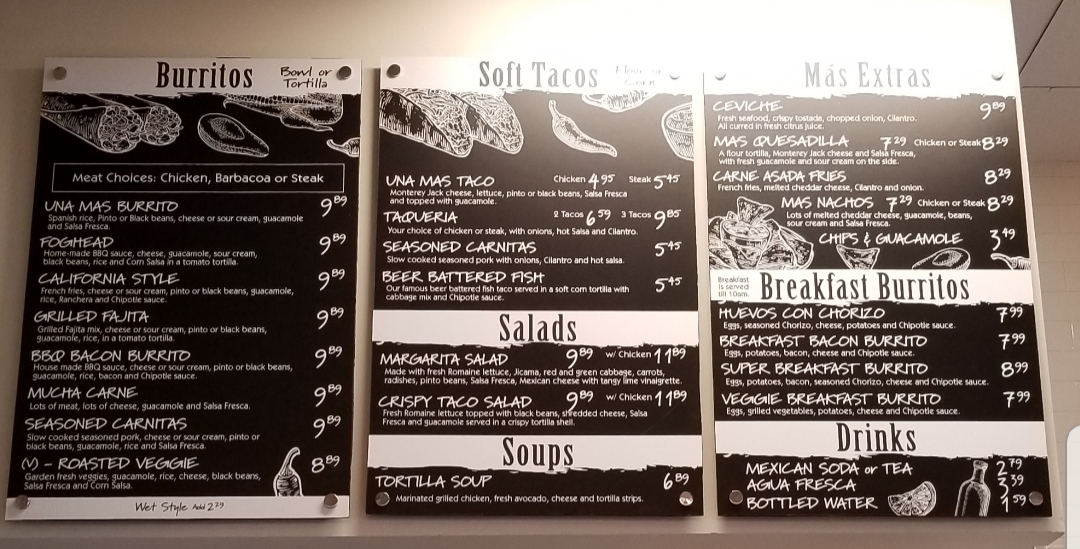 Burritos Bowl or
Tortilla
Meat Choices: Chicken, Barbacoa or Steak
UNA MAS BURRITO 9.89
Spanish rice, Pinto or Black beans, cheese or sour cream, guacamole
and Salsa Fresca.
FOGHEAD 9.89
Home-made BBQ sauce, cheese, guacamole, sour cream,
black beans, rice and Corn Salsa in a tomato tortilla.
CALIFORNIA STYLE 9.89
French fries, cheese or sour cream, pinto or black beans, guacamole,
rice, Ranchera and Chipotle sauce.
GRILLED FAJITA 9.89
Grilled Fajita mix, cheese or sour cream, pinto or black beans,
guacamole, rice, in a tomato tortilla.
BBQ BACON BURRITO 9.89
House made BBQ sauce, cheese or sour cream, pinto or black beans,
guacamole, rice, bacon and Chipotle sauce.
MUCHA CARNE 9.89
Lots of meat, lots of cheese, guacamole and Salsa Fresca.
SEASONED CARNITAS 9.89
Slow cooked seasoned pork, cheese or sour cream, pinto or
black beans, guacamole, rice and Salsa Fresca.
(V) - ROASTED VEGGIE 8.89
Garden fresh veggies, guacamole, rice, cheese, black beans,
Salsa Fresca and Corn Salsa.
Wet Style Add 2.29
Soft Tacos Flour or
Corn
UNA MAS TACO Chicken 4.95 Steak 5.45
Monterey Jack cheese, lettuce, pinto or black beans, Salsa Fresca
and topped with guacamole.
TAQUERIA 2 Tacos 6.59 3 Tacos 9.85
Your choice of chicken or steak, with onions, hot Salsa and Cilantro.
SEASONED CARNITAS 5.45
Slow cooked seasoned pork with onions, Cilantro and hot salsa.
BEER BATTERED FISH 5.45
Our famous beer battered fish taco served in a soft corn tortilla with
cabbage mix and Chipotle sauce.
Salads
MARGARITA SALAD 9.89 w/ Chicken 11.89
Made with fresh Romaine lettuce, Jicama, red and green cabbage, carrots,
radishes, pinto beans, Salsa Fresca, Mexican cheese with tangy lime vinaigrette.
CRISPY TACO SALAD 9.89 w/ Chicken 11.89
Fresh Romaine lettuce topped with black beans, shredded cheese, Salsa
Fresca and guacamole served in a crispy tortilla shell.
Soups
TORTILLA SOUP 6.89
Marinated grilled chicken, fresh avocado, cheese and tortilla strips.
Más Extras
CEVICHE 9.89
Fresh seafood, crispy tostada, chopped onion, Cilantro.
All cured in fresh citrus juice.
MAS QUESADILLA 7.29 Chicken or Steak 8.29
A flour tortilla, Monterey Jack cheese and Salsa Fresca,
with fresh guacamole and sour cream on the side.
CARNE ASADA FRIES 8.29
French fries, melted cheddar cheese, Cilantro and onion.
MAS NACHOS 7.29 Chicken or Steak 8.29
Lots of melted cheddar cheese, guacamole, beans,
sour cream and Salsa Fresca.
CHIPS & GUACAMOLE 3.49
Breakfast
is served
till 10am.
Breakfast Burritos
HUEVOS CON CHORIZO 7.99
Eggs, seasoned Chorizo, cheese, potatoes and Chipotle sauce.
BREAKFAST BACON BURRITO 7.99
Eggs, potatoes, bacon, cheese and Chipotle sauce.
SUPER BREAKFAST BURRITO 8.99
Eggs, potatoes, bacon, seasoned Chorizo, cheese and Chipotle sauce.
VEGGIE BREAKFAST BURRITO 7.99
Eggs, grilled vegetables, potatoes, cheese and Chipotle sauce.
Drinks
MEXICAN SODA or TEA 2.79
AGUA FRESCA 2.39
BOTTLED WATER 1.59